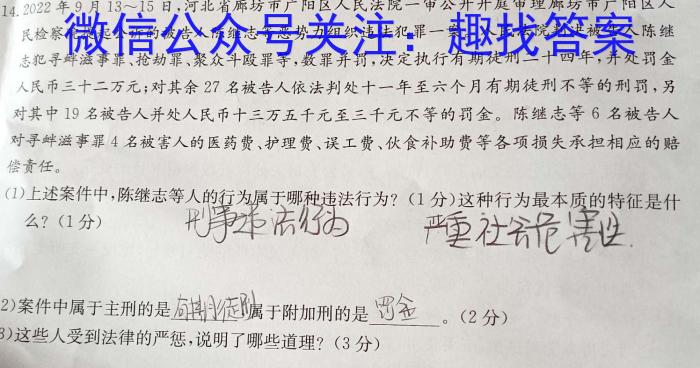 14.2022年9月13～15日,河北省廊坊市广阳区人民法院一审公开开庭审理廊坊市广阳区人
微信公众号关注：趣找答案
民检察院提起公诉的被告人陈继志等恶势力组织违法犯罪一案。人民法院判决被告人陈继
志犯寻衅滋事罪、抢劫罪、聚众斗殴罪等,数罪并罚,决定执行有期徒刑二十四年,并处罚金
人民币三十二万元;对其余27名被告人依法判处十一年至六个月有期徒刑不等的刑罚,另
对其中19名被告人并处人民币十三万五千元至三千元不等的罚金。陈继志等6名被告人
对寻衅滋事罪4名被害人的医药费、护理费、误工费、伙食补助费等各项损失承担相应的赔
偿责任。
(1)上述案件中,陈继志等人的行为属于哪种违法行为?(1分)这种行为最本质的特征是什
么?(1分) 刑事违法行为 严重社会危害性.
2)案件中属于主刑的是有期徒刑属于附加刑的是罚金。(2分)
3)这些人受到法律的严惩,说明了哪些道理?(3分)